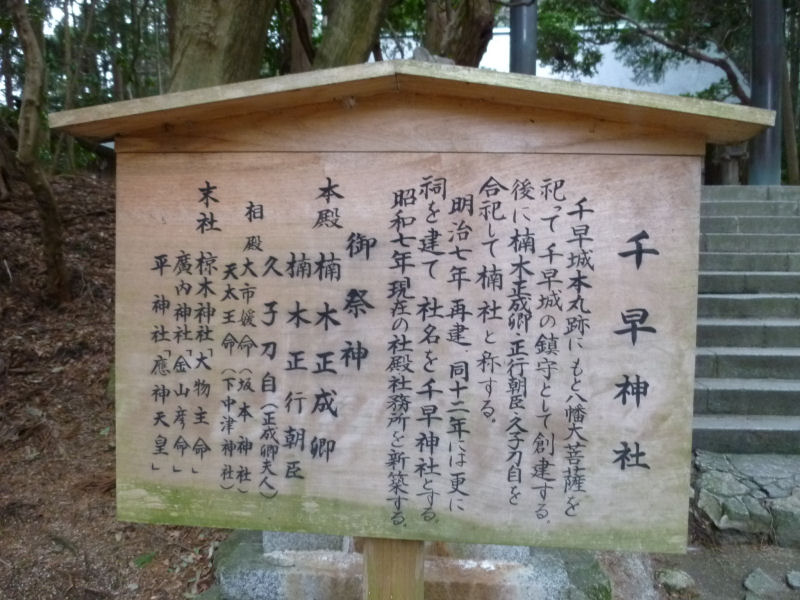 千早神社
千早城本丸跡にもと八幡大菩薩を
祀って千早城の鎮守として創建する。
後に楠木正成卿、正行朝臣、久子刀自を
合祀して楠社と称する。
明治七年再建、同十二年には更に
祠を建て社名を千早神社とする。
昭和七年現在の社殿、社務所を新築する。
御祭神
本殿 楠木正成卿
楠木正行朝臣
久子刀自（正成卿夫人）
相殿 大市媛命（坂本神社）
天太王命（下中津神社）
末社 椋木神社「大物主命」
廣内神社「金山彦命」
平神社「應神天皇」